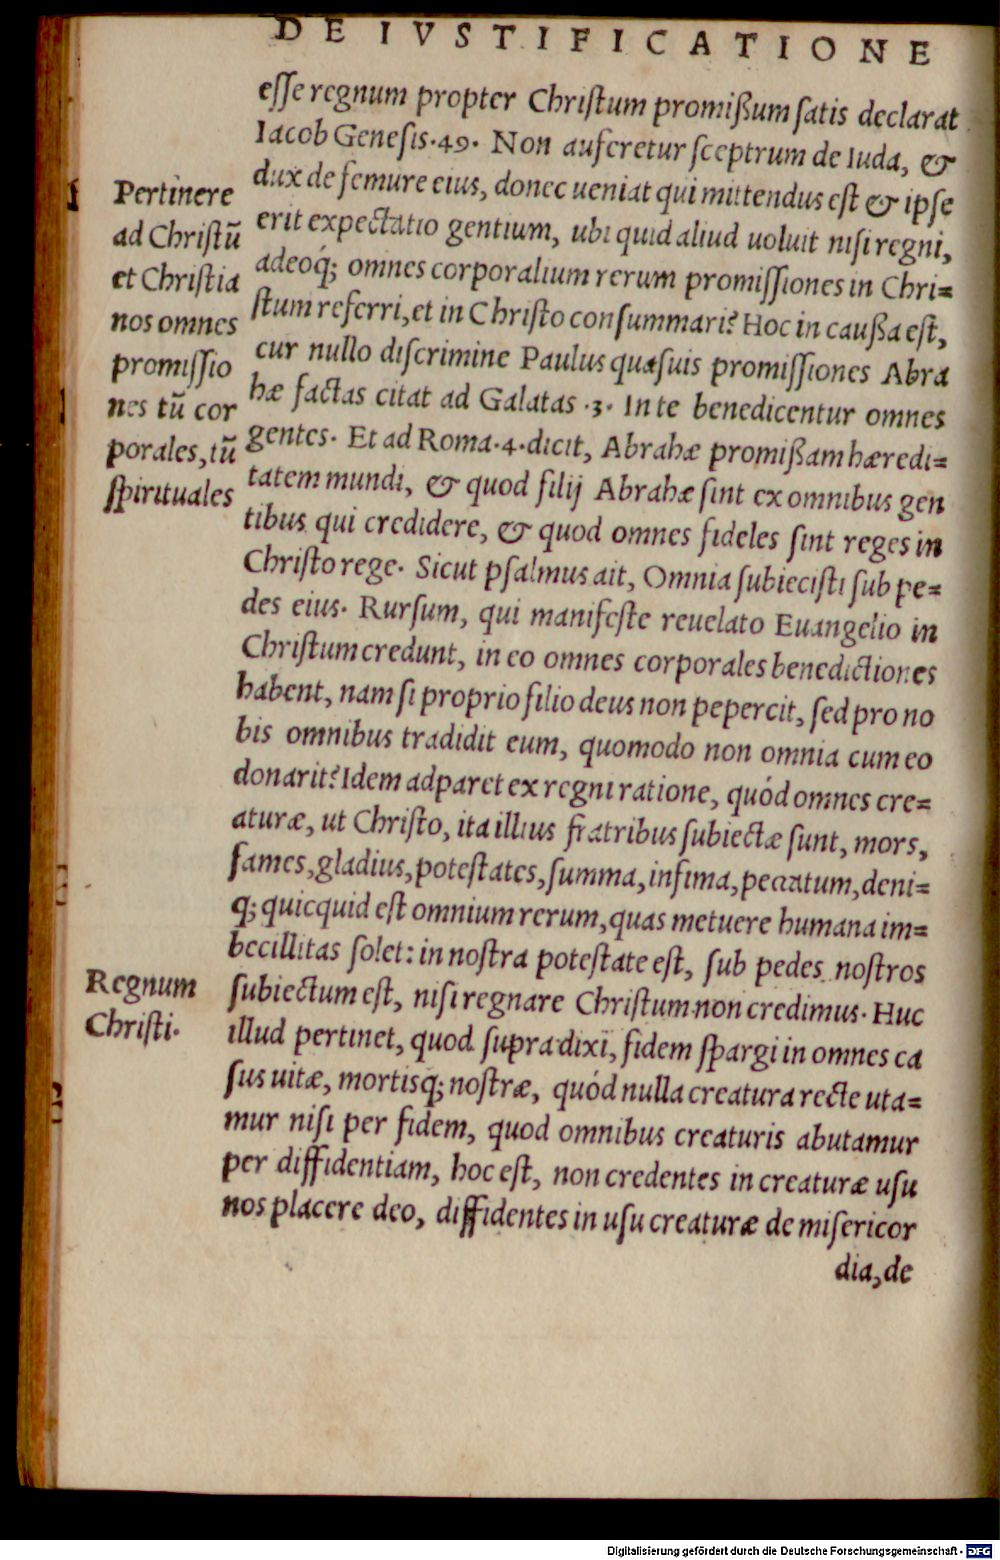 DE IVSTIFICATIONE
eſſe regnum propter Chriſtum promißum ſatis declarat
Iacob Geneſis.49. Non auferetur ſceptrum de Iuda, &
dux de femure eius, donec ueniat qui mittendus eſt & ipſe
erit expectatio gentium, ubi quid aliud uoluit niſi regni,
adeoq́; omnes corporalium rerum promiſſiones in Chri=
ſtum referri, et in Chriſto conſummari? Hoc in caußa eſt,
cur nullo diſcrimine Paulus quaſuis promiſſiones Abra
hæ factas citat ad Galatas .3. In te benedicentur omnes
gentes. Et ad Roma.4.dicit, Abrahæ promißam hæredi=
tatem mundi, & quod filij Abrahæ ſint ex omnibus gen
tibus qui credidere, & quod omnes fideles ſint reges in
Chriſto rege. Sicut pſalmus ait, Omnia ſubieciſti ſub pe=
des eius. Rurſum, qui manifeſte reuelato Euangelio in
Chriſtum credunt, in eo omnes corporales benedictiones
habent, nam ſi proprio filio deus non pepercit, ſed pro no
bis omnibus tradidit eum, quomodo non omnia cum eo
donarit? Idem adparet ex regni ratione, quód omnes cre=
aturæ, ut Chriſto, ita illius fratribus ſubiectæ ſunt, mors,
fames, gladius, poteſtates, ſumma, infima, peccatum, deni=
q; quicquid eſt omnium rerum, quas metuere humana im=
becillitas ſolet: in noſtra poteſtate eſt, ſub pedes noſtros
ſubiectum eſt, niſi regnare Chriſtum non credimus. Huc
illud pertinet, quod ſupra dixi, fidem ſpargi in omnes ca
ſus uitæ, mortisq; noſtræ, quód nulla creatura recte uta=
mur niſi per fidem, quod omnibus creaturis abutamur
per diffidentiam, hoc eſt, non credentes in creaturæ uſu
nos placere deo, diffidentes in uſu creaturæ de miſericor
dia, de
Pertinere
ad Chriſtū
et Chriſtia
nos omnes
promiſſio
nes tū cor
porales, tū
ſpirituales
Regnum
Chriſti.
Digitalisierung gefördert durch die Deutsche Forschungsgemeinschaft - DFG